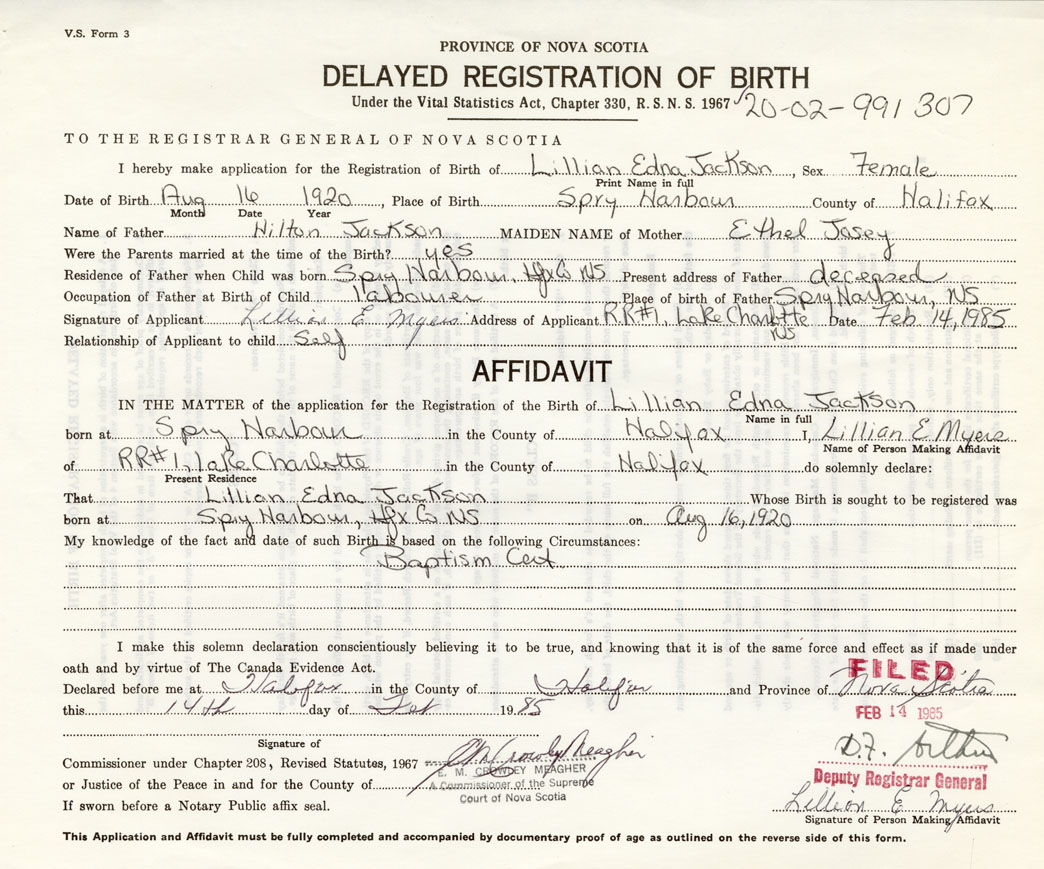 V.S. Form 3
PROVINCE OF NOVA SCOTIA
DELAYED REGISTRATION OF BIRTH
Under the Vital Statistics Act, Chapter 330, R. S. N. S. 1967 20-02-991307
TO THE REGISTRAR GENERAL OF NOVA SCOTIA
I hereby make application for the Registration of Birth of Lillian Edna Jackson, Sex Female
Print Name in full
Date of Birth Aug 16 1920, Place of Birth Spry Harbour County of Halifax
Month Date Year
Name of Father Hilton Jackson MAIDEN NAME of Mother Ethel Josey
Were the Parents married at the time of the Birth? yes
Residence of Father when Child was born Spry Harbour, Hfx Co NS Present address of Father deceased
Occupation of Father at Birth of Child Labourer Place of birth of Father Spry Harbour, NS
Signature of Applicant Lillian E Myers Address of Applicant RR#1, Lake Charlotte NS Date Feb. 14, 1985
Relationship of Applicant to child Self
AFFIDAVIT
IN THE MATTER of the application for the Registration of the Birth of Lillian Edna Jackson
Name in full
born at Spry Harbour in the County of Halifax I, Lillian E Myers
Name of Person Making Affidavit
of RR#1, Lake Charlotte in the County of Halifax do solemnly declare:
Present Residence
That Lillian Edna Jackson Whose Birth is sought to be registered was
born at Spry Harbour, Hfx Co NS on Aug 16, 1920
My knowledge of the fact and date of such Birth is based on the following Circumstances:
Baptism Cert
I make this solemn declaration conscientiously believing it to be true, and knowing that it is of the same force and effect as if made under
oath and by virtue of The Canada Evidence Act.
FILED
Declared before me at Halifax in the County of Halifax and Province of Nova Scotia
this 14th day of Feb 1985
FEB 14 1985
Signature of
Commissioner under Chapter 208, Revised Statutes, 1967 E M Crowley Meagher
E. M. CROWLEY MEAGHER
D.F.
or Justice of the Peace in and for the County of A Commissioner of the Supreme
Court of Nova Scotia
Deputy Registrar General
If sworn before a Notary Public affix seal.
Lillian E Myers
Signature of Person Making Affidavit
This Application and Affidavit must be fully completed and accompanied by documentary proof of age as outlined on the reverse side of this form.